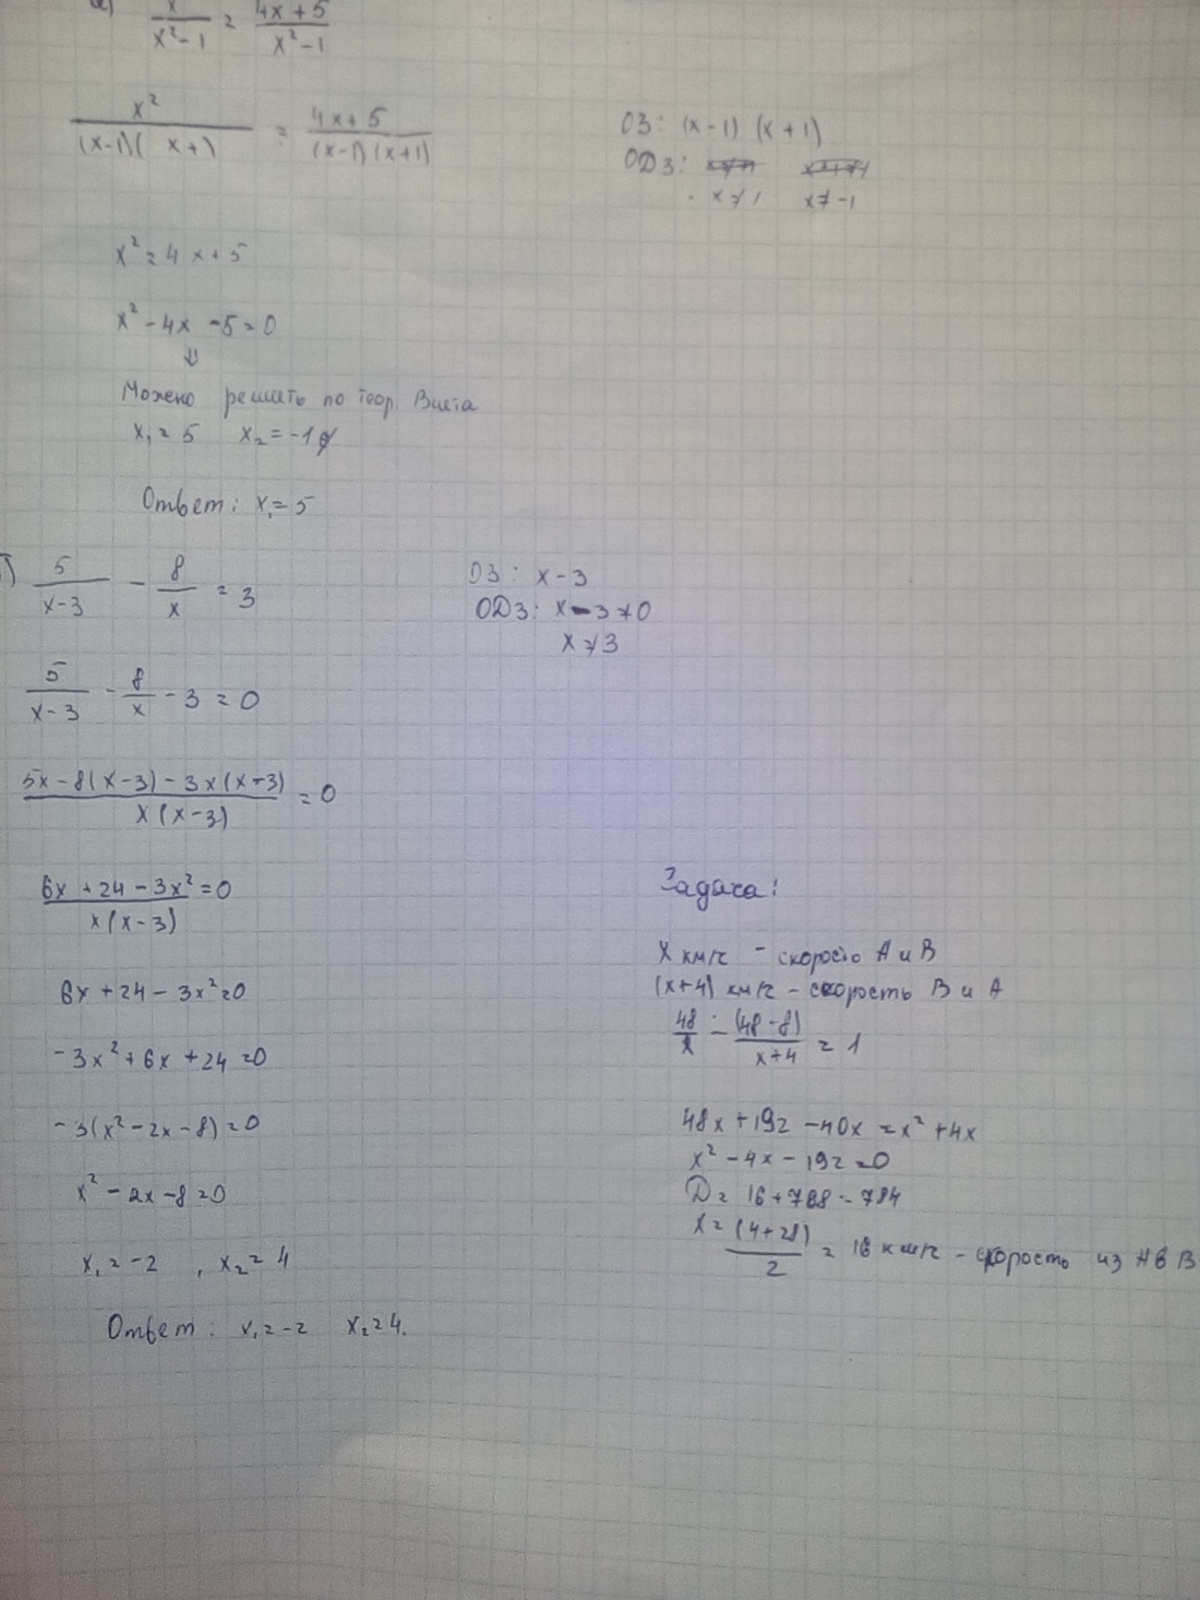 а) x²/(x²-1) = (4x+5)/(x²-1)
x²/((x-1)( x+)) = (4x+5)/((x-1)(x+1))
ОЗ: (x-1) (x+1)
ОДЗ:
x≠1 x≠-1
x² = 4x+5
x² - 4x - 5 = 0
⇓
Можно решить по теор. Виета
x₁ = 5 x₂ = -1
Ответ: x₁ = 5
5/(x-3) - 8/x = 3
ОЗ: x-3
ОДЗ: x-3≠0
x≠3
5/(x-3) - 8/x - 3 = 0
(5x-8(x-3)-3x(x-3))/(x(x-3)) = 0
(6x+24-3x²)/(x(x-3)) = 0
6x+24-3x²=0
-3x²+6x+24=0
-3(x²-2x-8)=0
x²-2x-8=0
x₁=-2 , x₂=4
Ответ: x₁=-2 x₂=4.
Задача:
X км/ч - скорость А и В
(x+4) км/ч - скорость В и А
48/x - (48-8)/(x+4) = 1
48x+192-40x=x²+4x
x²-4x-192=0
D= 16+768=784
x=(4+28)/2 = 16 км/ч - скорость из А в В